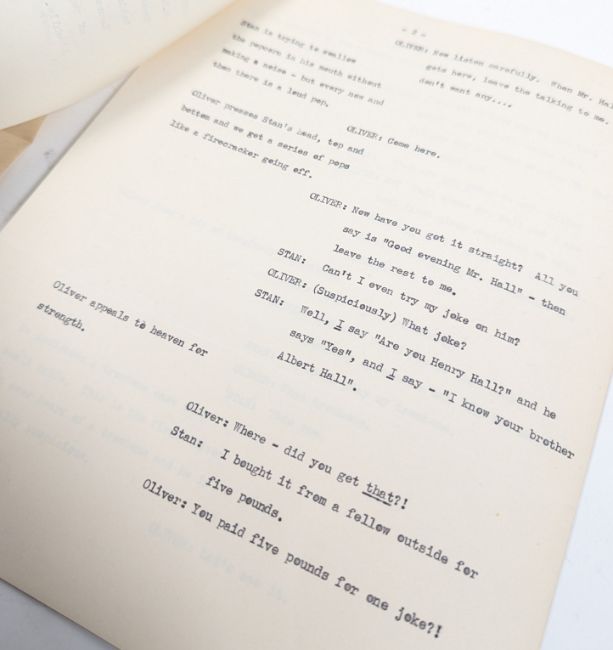 - 2 -
Stan is trying to swallow
the popcorn in his mouth without
making a noise - but every now and
then there is a loud pop.
OLIVER: Now listen carefully. When Mr. Hal
gets here, leave the talking to me.
don't want any....
OLIVER: Come here.
Oliver presses Stan's head, top and
bottom and we get a series of pops
like a firecracker going off.
OLIVER: Now have you got it straight? All you
say is "Good evening Mr. Hall" - then
leave the rest to me.
STAN: Can't I even try my joke on him?
OLIVER: (Suspiciously) What joke?
STAN: Well, I say "Are you Henry Hall?" and he
says "Yes", and I say - "I know your brother
Albert Hall".
Oliver appeals to heaven for
strength.
Oliver: Where - did you get that?!
Stan: I bought it from a fellow outside for
five pounds.
Oliver: You paid five pounds for one joke?!